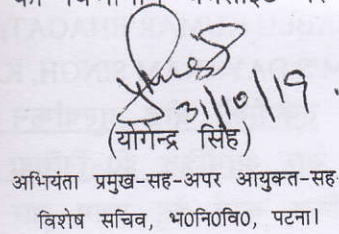 31/10/19
(योगेन्द्र सिंह)
अभियंता प्रमुख-सह-अपर आयुक्त-सह-
विशेष सचिव, भ0नि0वि0, पटना।